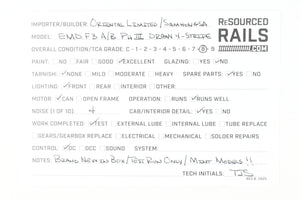 IMPORTER/BUILDER: ORIENTAL LIMITED/SAMHONGSA
RESOURCED RAILS .COM
MODEL: EMD F3 A/B PH III D&RGW 4-STRIPE
OVERALL CONDITION/TCA GRADE: C - 1 - 2 - 3 - 4 - 5 - 6 - 7 - 8 - 9
PAINT: NO FAIR GOOD ✓EXCELLENT GLAZING: YES ✓NO
TARNISH: ✓NONE MILD MODERATE HEAVY SPARE PARTS ✓YES NO
LIGHTING: ✓FRONT REAR INTERIOR OTHER:
MOTOR: ✓CAN OPEN FRAME OPERATION: RUNS ✓RUNS WELL
NOISE (1 OF 10) 4 CAB/INTERIOR DETAIL: ✓YES NO
WORK COMPLETED ✓TEST EXTERNAL LUBE INTERNAL LUBE TUBE REPLACE
GEARS/GEARBOX REPLACE ELECTRICAL MECHANICAL SOLDER REPAIRS
CONTROL ✓DC DCC SOUND SYSTEM
NOTES: BRAND NEW IN BOX/TEST RUN ONLY/MINT MODELS!!
TECH INITIALS: TJS